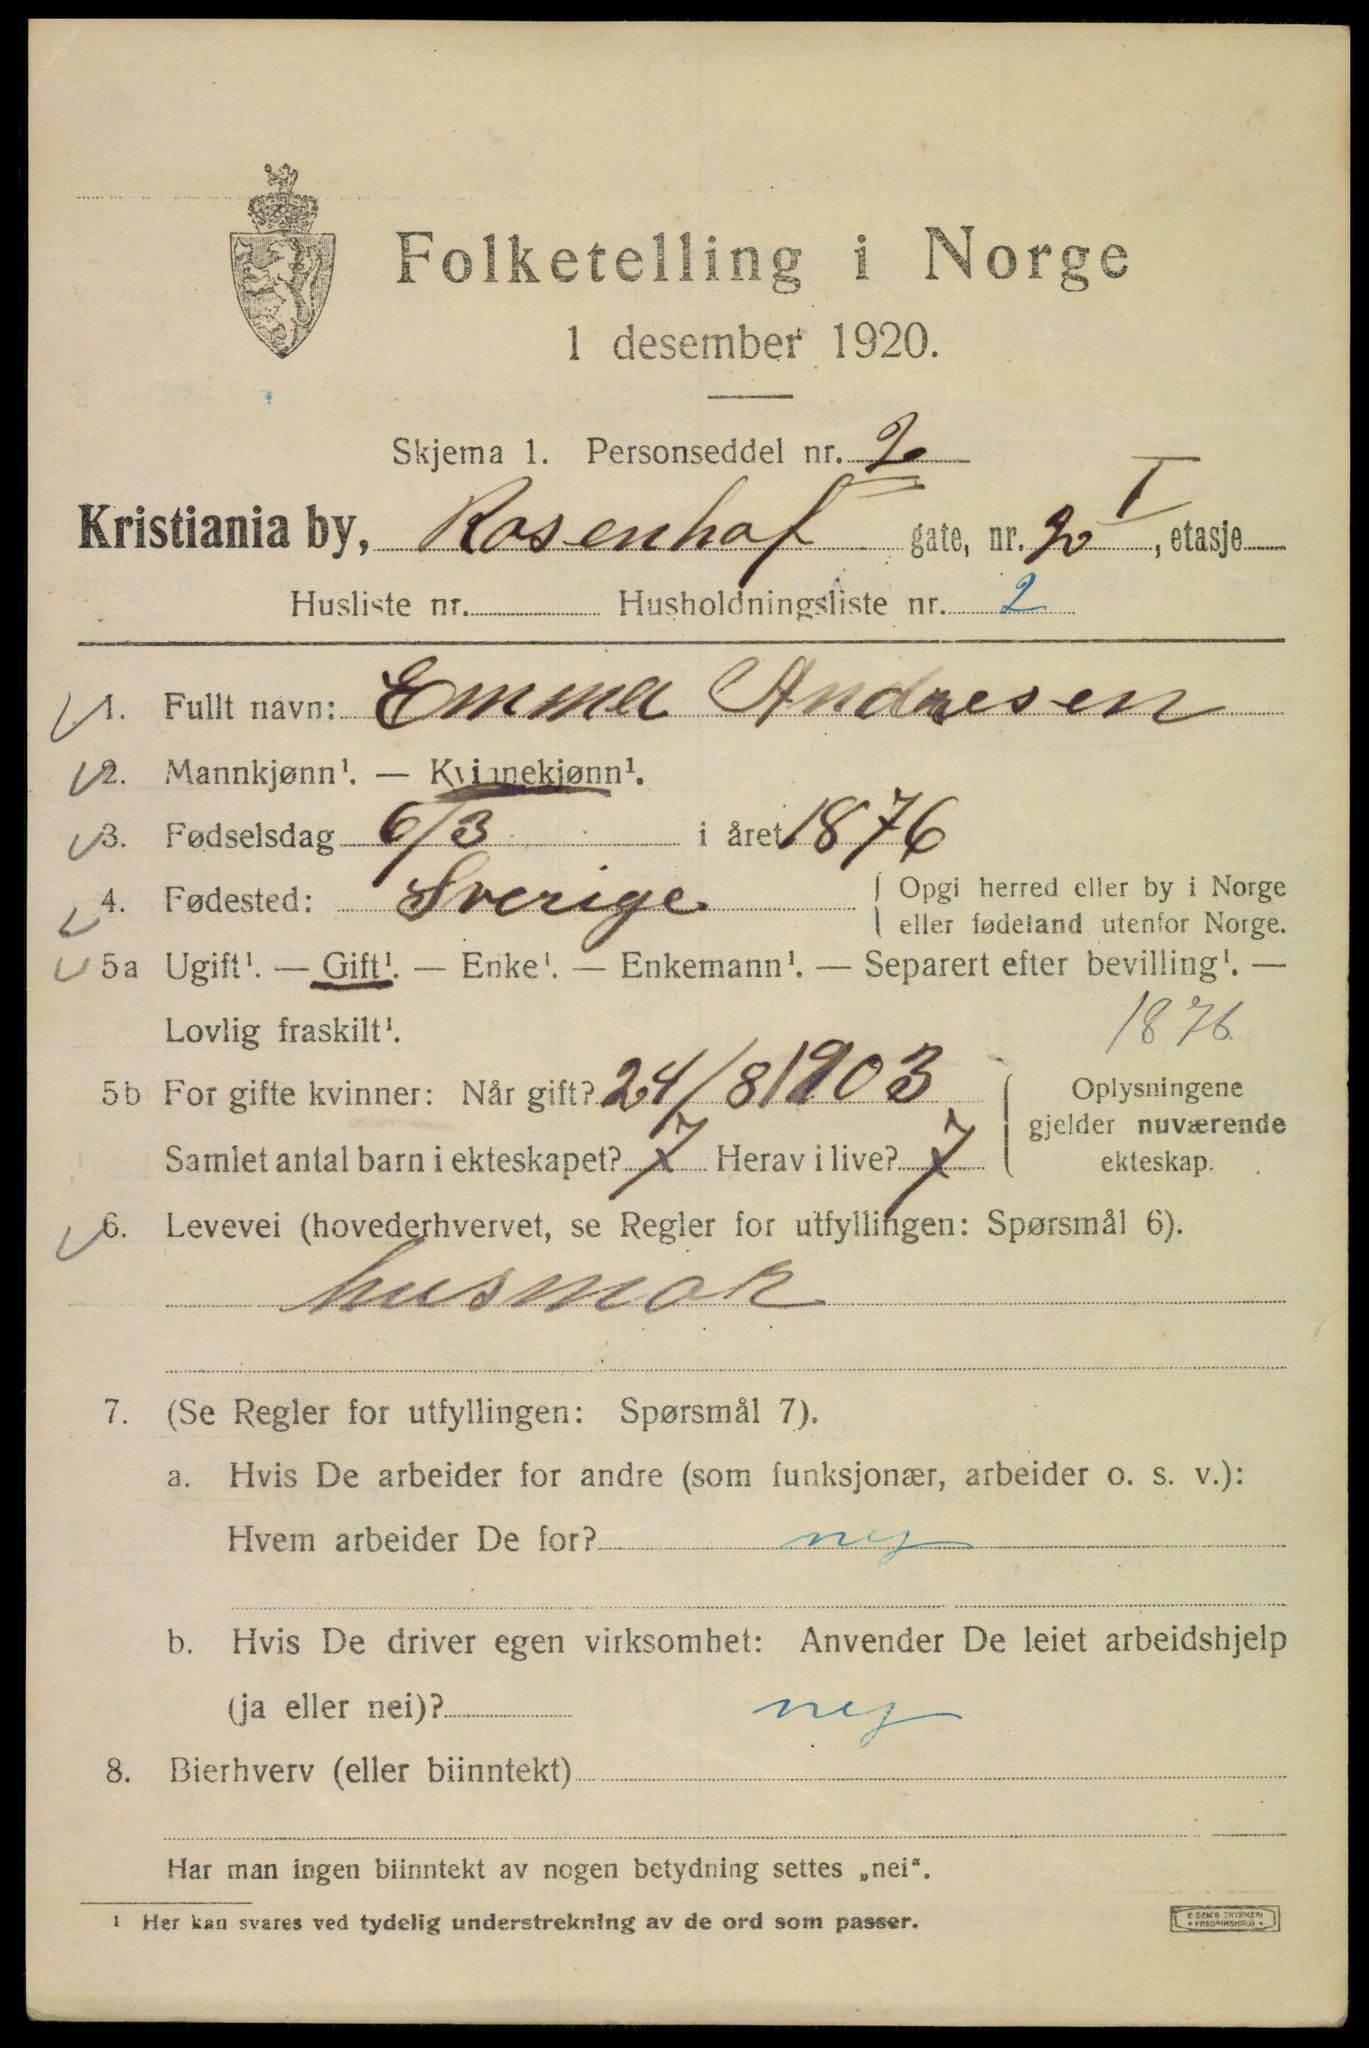 Folketelling i Norge
1 desember 1920.
Skjema 1. Personseddel nr. 2
Kristiania by, Rosenhof gate, nr. 20 I, etasje
Husliste nr. Husholdningsliste nr. 2
1. Fullt navn: Emma Andresen
2. Mannkjønn¹. — Kvinnekjønn¹.
3. Fødselsdag 6/3 i året 1876
4. Fødested: Sverige Opgi herred eller by i Norge
eller fødeland utenfor Norge.
5a Ugift¹. — Gift¹. — Enke¹. — Enkemann¹. — Separert efter bevilling¹. —
Lovlig fraskilt¹. 1876
5b For gifte kvinner: Når gift? 24/8 1903 Oplysningene
gjelder nuværende
Samlet antal barn i ekteskapet? 7 Herav i live? 7 ekteskap.
6. Levevei (hovederhvervet, se Regler for utfyllingen: Spørsmål 6).
husmor
7. (Se Regler for utfyllingen: Spørsmål 7).
a. Hvis De arbeider for andre (som funksjonær, arbeider o. s. v.):
Hvem arbeider De for? nej
b. Hvis De driver egen virksomhet: Anvender De leiet arbeidshjelp
(ja eller nei)? nej
8. Bierhverv (eller biinntekt)
Har man ingen biinntekt av nogen betydning settes „nei“.
¹ Her kan svares ved tydelig understrekning av de ord som passer.